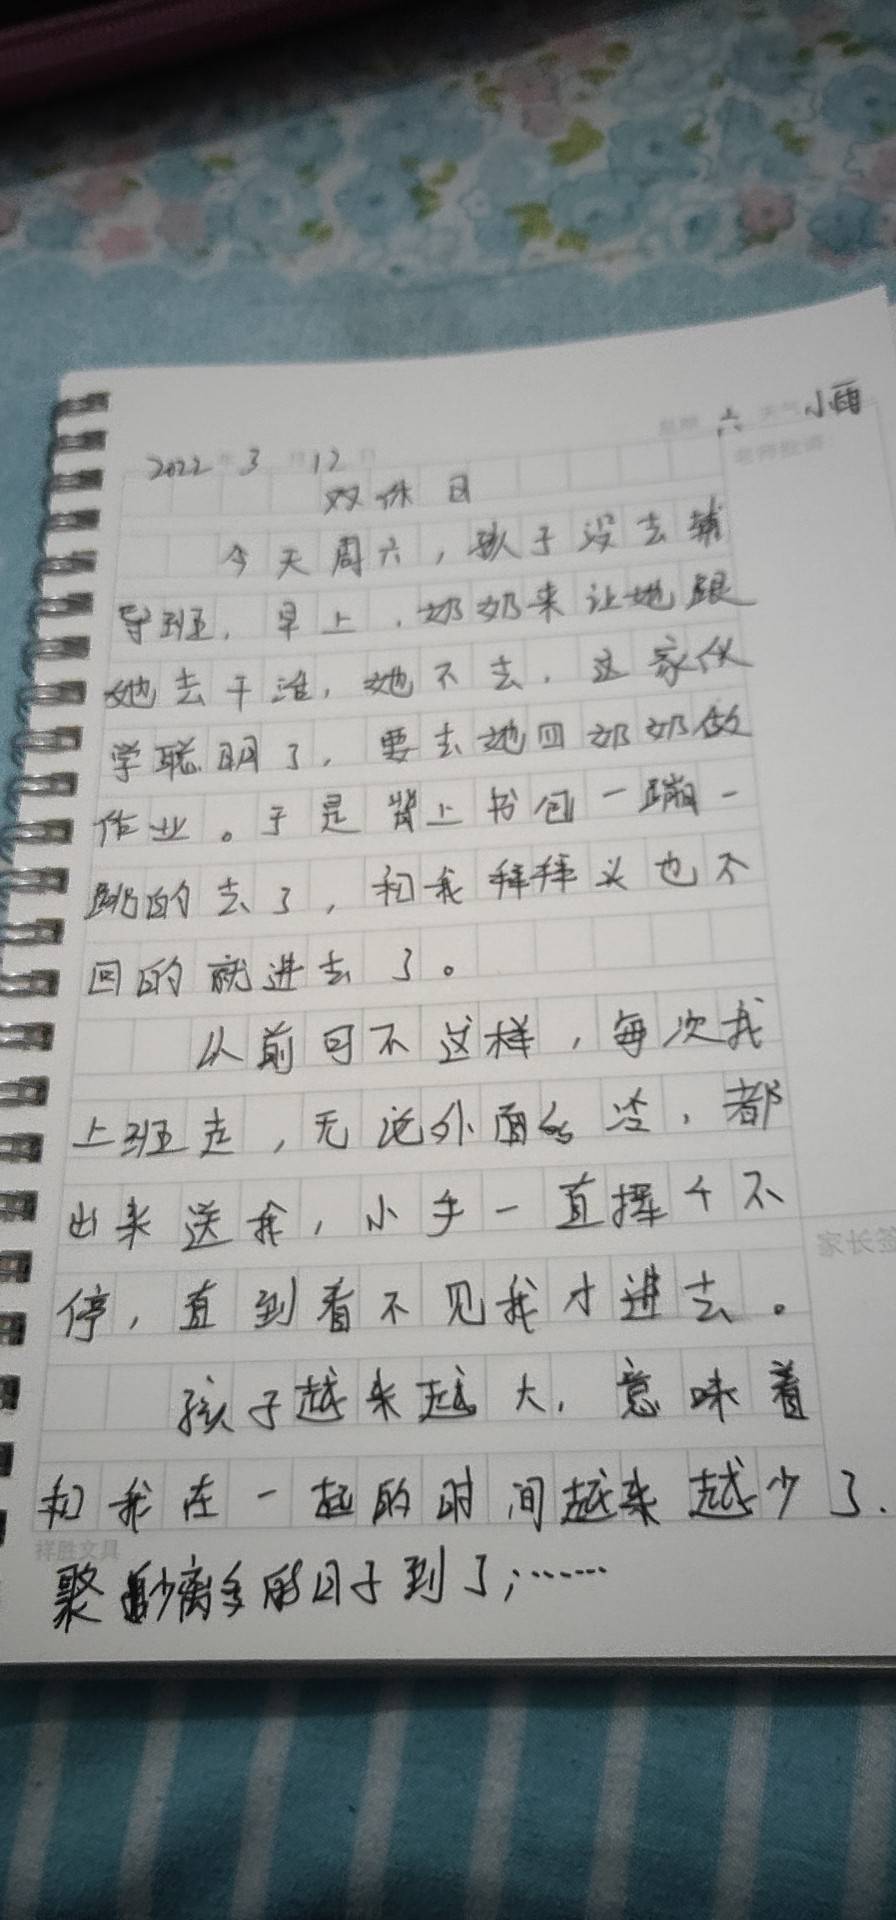 2022年3月12日 星期六 天气小雨
老师批语
双休日
今天周六，孩子没去辅
导班，早上，奶奶来让她跟
她去干滩，她不去，这家伙
学聪明了，要去她四奶奶做
作业。于是背上书包一蹦一
跳的去了，和我拜拜头也不
回的就进去了。
从前可不这样，每次我
上班走，无论外面多冷，都
出来送我，小手一直挥个不
停，直到看不见我才进去。
家长签
孩子越来越大，意味着
和我在一起的时间越来越少了.
祥胜文具
聚少离多的日子到了；……